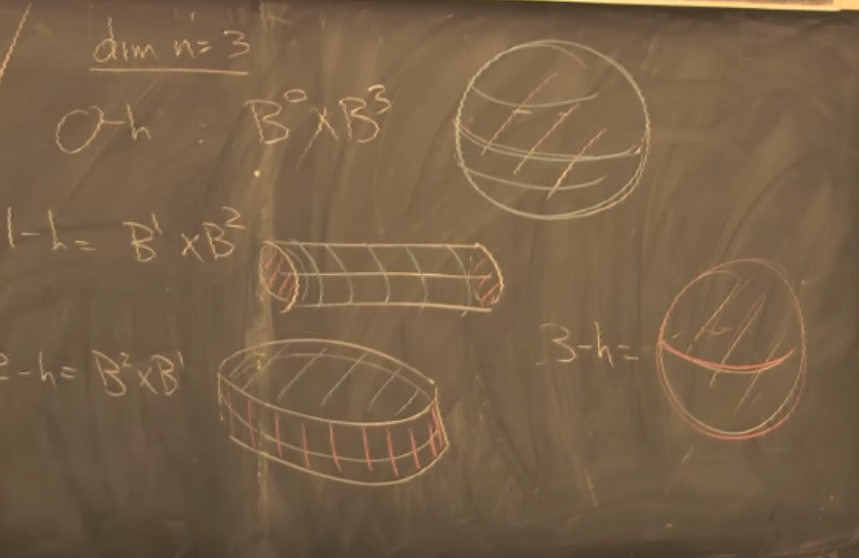 dim n=3
0-h B⁰×B³
1-h= B¹×B²
2-h= B²×B¹
3-h=